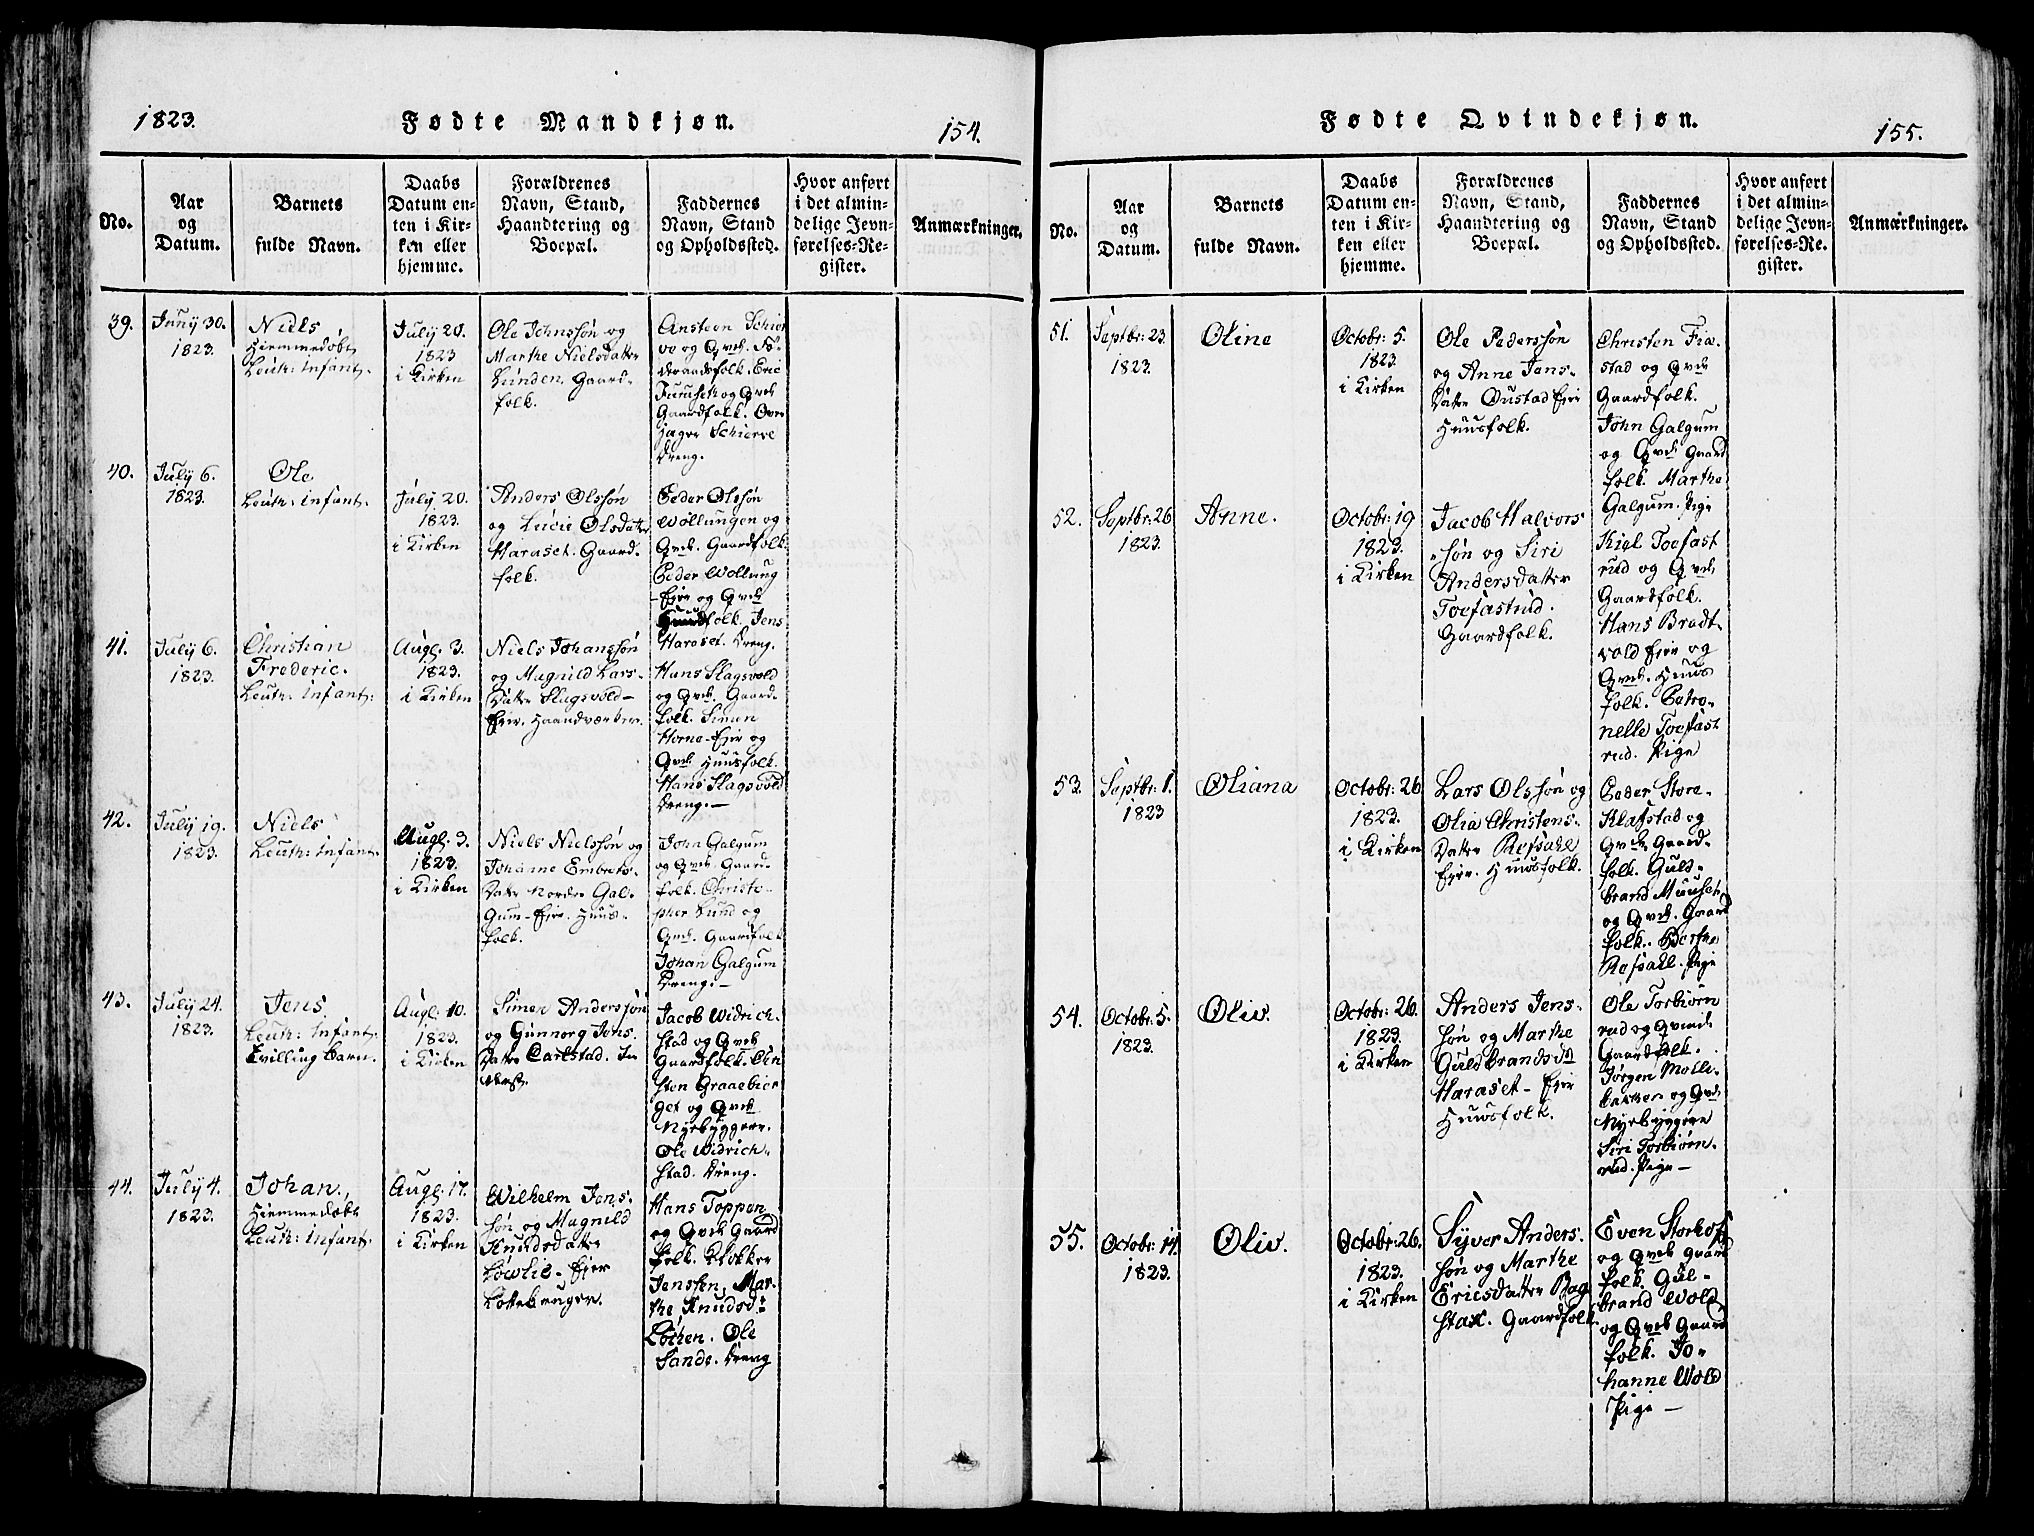 1823.
Fødte Mandkjøn.
154.
No.
Aar
og
Datum.
Barnets
fulde Navn.
Daabs
Datum en-
ten i Kir-
ken eller
hjemme.
Forældrenes
Navn, Stand,
Haandtering og
Boepæl.
Faddernes
Navn, Stand
og Opholdssted.
Hvor anført
i det almin-
delige Jevn-
førelses-Re-
gister.
Anmærkninger.
39.
Juny 30.
1823.
Niels
Hiemmedøbt
Leuth: Infant.
July 20.
1823
i Kirken
Ole Johnssøn og
Marthe Nielsdatter
Lunden. Gaard-
folk.
Ansteen Schier
ve og Qvd.
Eric
Furuseth og Qvd
Gaardfolk. Over
Hager Schierve
Dreng.
40.
July 6.
1823.
Ole
Leuth: Infant.
July 20.
1823.
i Kirken
Anders Olssøn
og Lucie Olsdatter
Haraset. Gaard-
folk.
Peder Olssøn
Wollungen og
Qvd. Gaardfolk
Peder Wollung
Eje og Qvd
folk. Jens
Haraset. Dreng.
41.
July 6.
1823.
Christian
Frederic.
Leuth: Infant:
Augl. 3.
1823.
i Kirken
Niels Johanssøn
og Magnild Lars-
Datter Slagsvold-
Ejer. Haandværker.
Hans Slagsvold
og Qvd. Gaard-
folk. Simen
Horne-Eje og
Qvd Huusfolk.
Hans Slagsvold
Dreng.—
42.
July 19.
1823.
Niels
Leuth: Infant.
Augl. 3.
1823.
i Kirken
Niels Nielssøn og
Johanne Embrets-
Datter Nordre Gal-
gum-Eje. Huus-
folk.
John Galgum
og Qvd. Gaard-
folk. Christo-
pher Lund og
Qvd. Gaardfolk
Johan Galgum
Dreng.—
43.
July 24.
1823.
Jens.
Leuth: Infant.
Tvilling Barn.
Augl. 10.
1823.
i Kirken
Simen Anderssøn
og Gunnorg Jons-
Datter Carlstad. In
Jacob Widrich-
stad og Qvd
Gaardfolk.
sten Graaebier
get og Qvd
Nyebyggere.
Ole Widrich-
stad. Dreng.
44.
July 4.
1823.
Johan.
Hiemmedøbt
Leuth: Infant.
Augl. 17.
1823.
i Kirken
Wilhelm Jens-
søn og Magnild
Knudsdatter
Lowlie-Ejer
Hans Toppen
og Qvd Gaard
folk. Klokker
Jenssen, Mar-
the Knudsd:
Løchen. Ole
Sande. Dreng
Fødte Qvindekjøn.
155.
No.
Aar
og
Datum.
Barnets
fulde Navn.
Daabs
Datum en-
ten i Kir-
ken eller
hjemme.
Forældrenes
Navn, Stand,
Haandtering og
Boepæl.
Faddernes
Navn, Stand
og Opholdssted.
Hvor anført
i det almin-
delige Jevn-
førelses-Re-
gister.
Anmærkninger.
51.
Septbr: 23
1823.
Oline
Octobr: 5.
1823.
i Kirken
Ole Pederssøn
og Anne Jens-
Datter Oustad Ejer
Huusfolk.
Christen Fiæ-
stad og Qvd
Gaardfolk.
John Galgum
og Qvd Gaard
folk. Marthe
Galgum. Pige
52.
Septbr: 26
1823.
Anne.
Octobr: 19
1823.
i Kirken
Jacob Halvors
-søn og Siri
Andersdatter
Toefastrud.
Gaardfolk.
Kiel Toefast
rud og Qvd.
Gaardfolk.
Hans Bradt-
vold Ejer og
Qvd. Huus
folk. Petro-
nelle Toefast
rud. Pige
53.
Septbr: 1.
1823
Oliana
Octobr: 26
1823.
i Kirken
Lars Olssøn og
Olia Christens-
Datter Refsahl
Ejer. Huusfolk.
Peder Store-
Klafstad og
Qvd. Gaard-
folk. Guld-
brand Muuset
og Qvd. Gaard
folk. Berthe
Refsahl. Pige
54.
Octobr: 5.
1823.
Oliv.
Octobr: 26.
1823.
i Kirken
Anders Jens-
søn og Marthe
Guldbrandsd
Haraset- Ejer
Huusfolk.
Ole Torbiørn
rud og Qvind:
Gaardfolk.
Jørgen Molli-
bakken og Qvd.
Nyebyggere
Siri Torbiørn-
rud. Pige—
55.
Octobr: 14.
1823.
Oliv.
Octobr: 26.
1823.
i Kirken
Syver Anders-
søn og Marthe
Ericsdatter Bag
stax. Gaardfolk.
Even Storhof
og Qvd Gaard
folk. Gul-
brand Wold
og Qvd Gaard
folk. Jo-
hanne Wold
Pige—